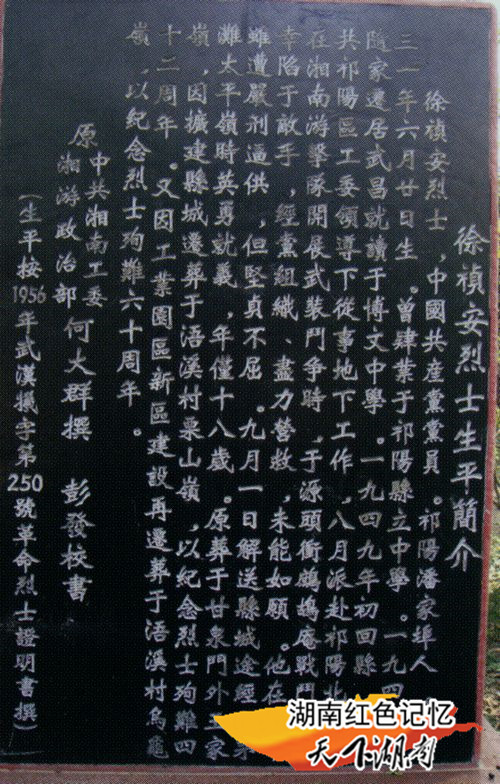 徐禎安烈士生平簡介
徐禎安烈士,中國共産黨黨員。祁陽潘家埠人
三一年六月廿日生。曾肆業于祁陽縣立中學。一九四
隨家遷居武昌就讀于博文中學。一九四九年初回縣
共祁陽區工委領導下從事地下工作,八月派赴祁陽北
在湘南游擊隊開展武裝鬥争時,于源頭衝鵝塢庵戰鬥
幸陷于敵手,經黨組織、盡力營救,未能如願。他在
雖遭嚴刑逼供,但堅貞不屈。九月一日解送縣城途經
灘太平嶺時英勇就義,年僅十八歲。原葬于甘泉門外王家
嶺,因擴建縣城遷葬于浯溪村栗山嶺,以紀念烈士殉難四
十二周年。又因工業園區新區建設再遷葬于浯溪村烏龜
嶺,以紀念烈士殉難六十周年。
原中共湘南工委
湘游政治部
何大群撰 彭發校書
(生平按1956年武漢摡字第250號革命烈士證明書撰)
湖南红色记忆
天下湖南